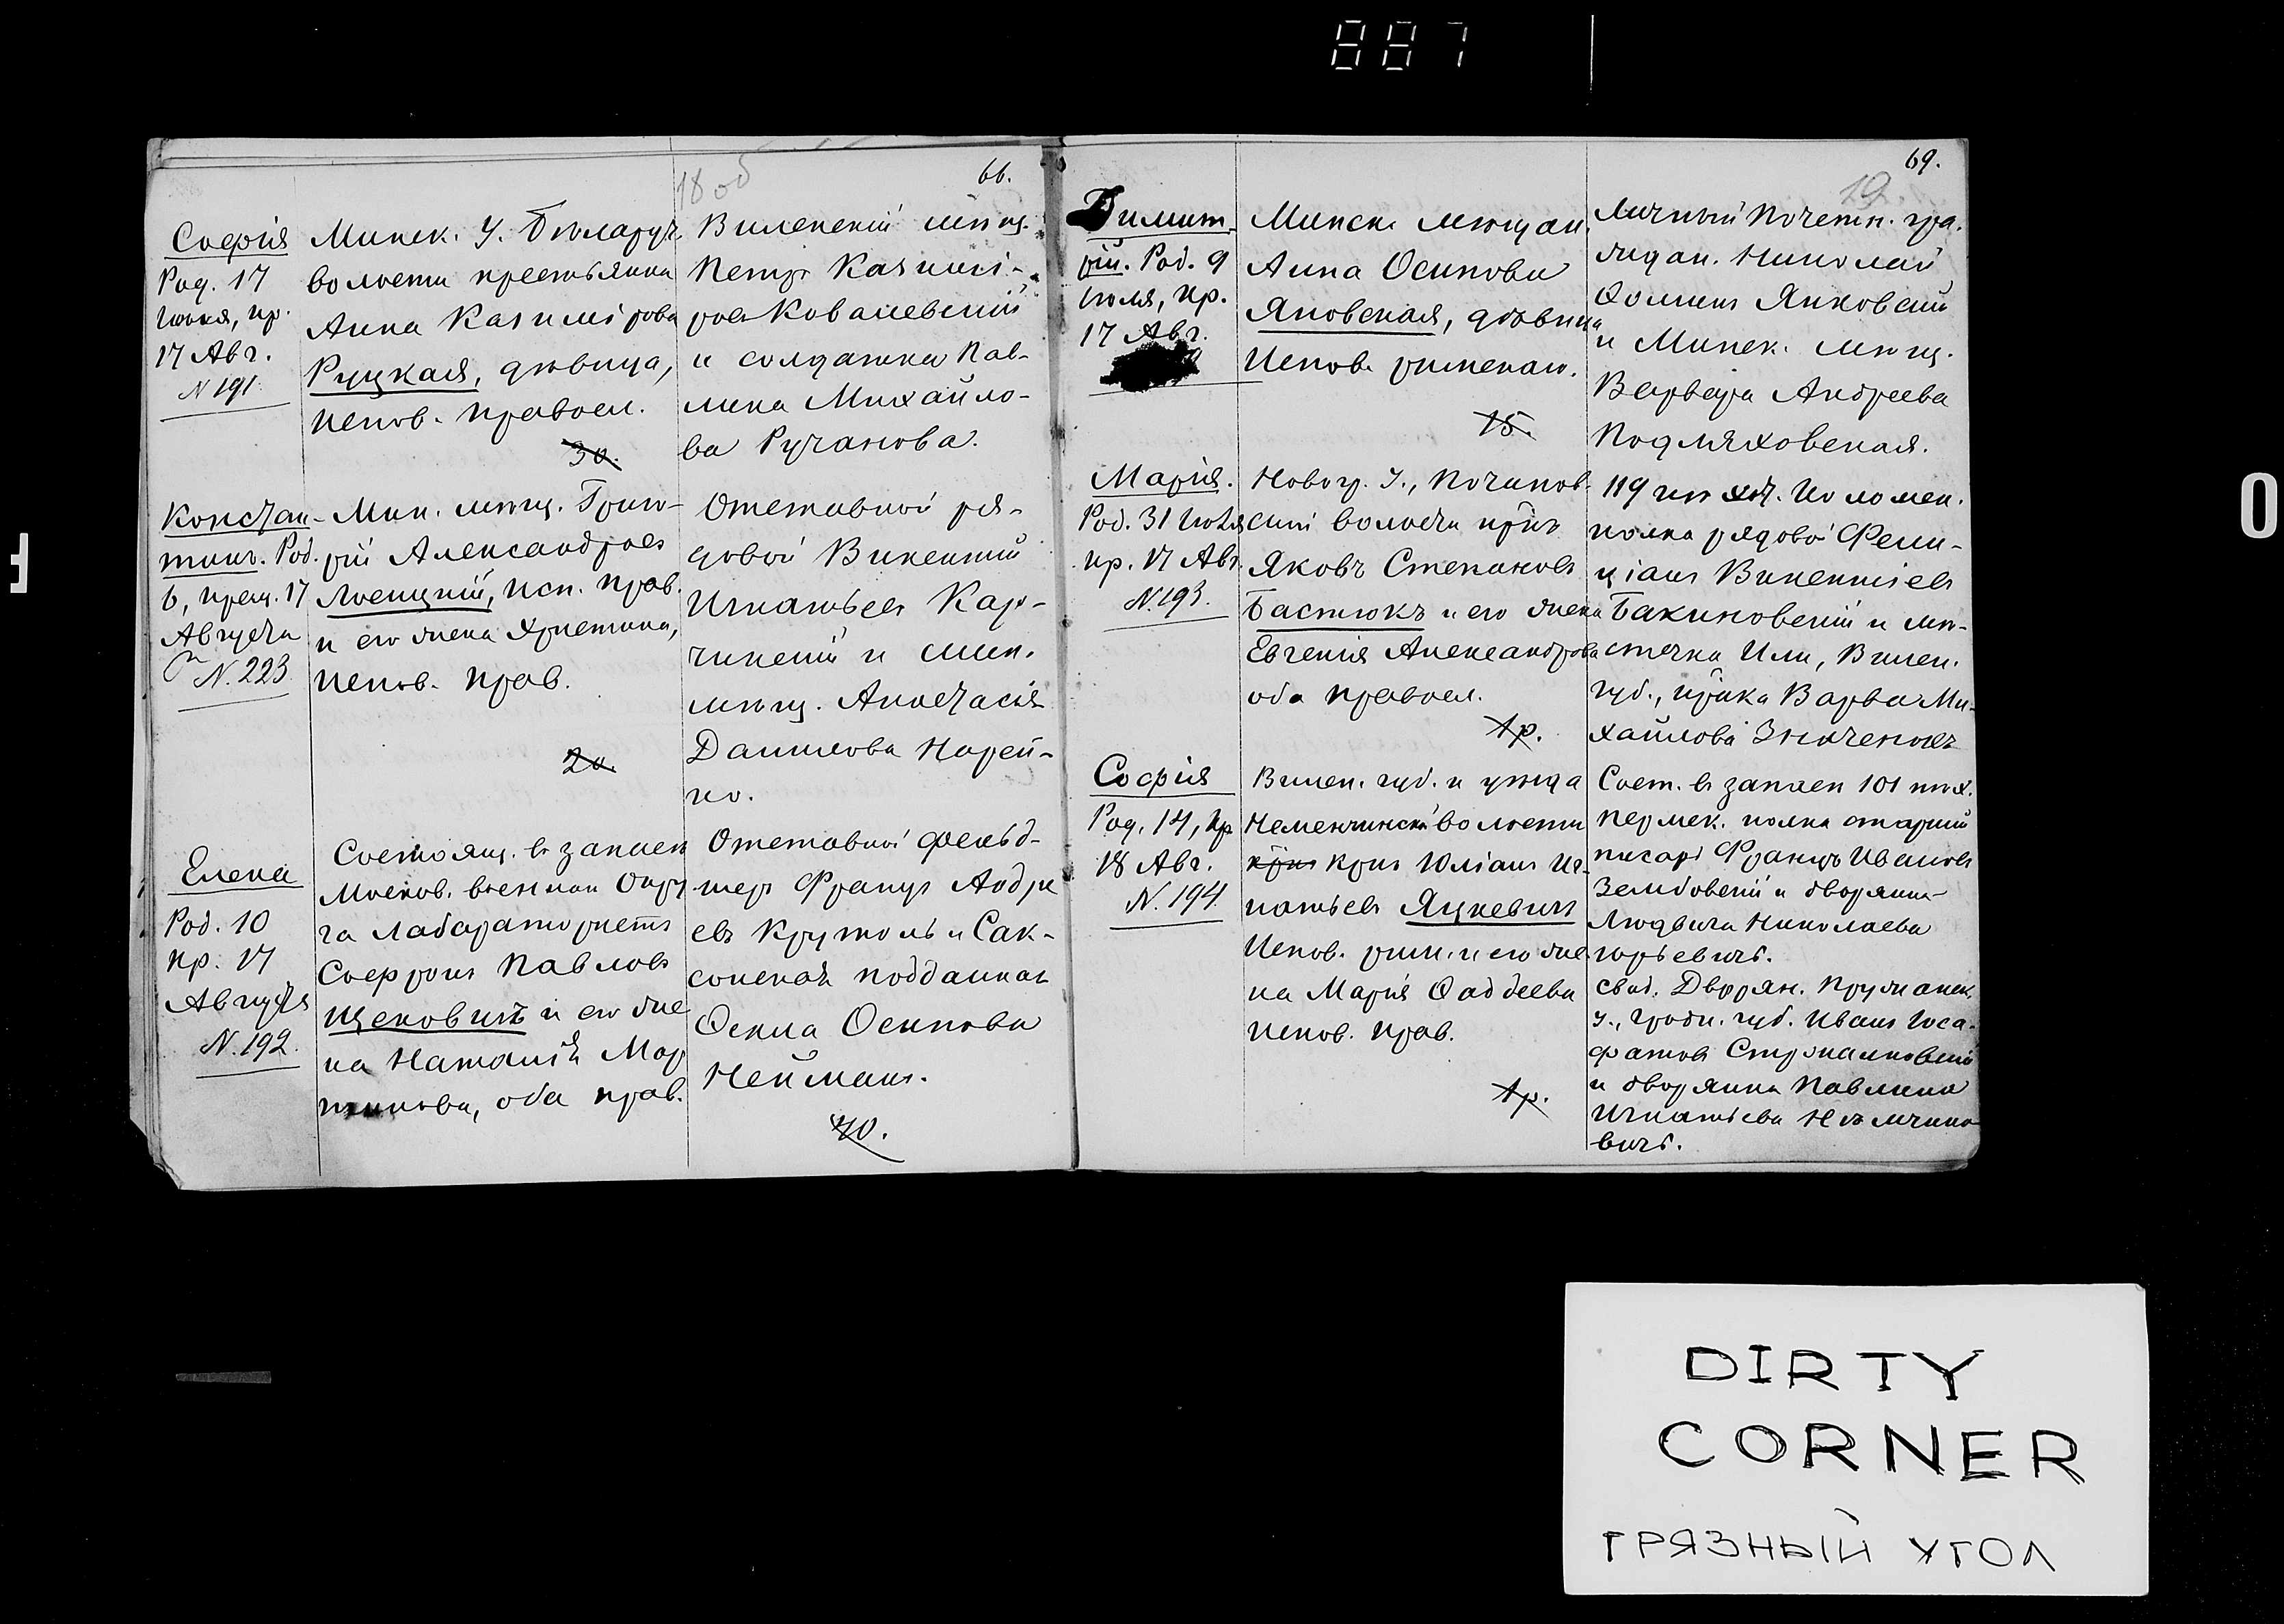 887
66.
18 об
София
Род. 17
Іюня, кр.
17 Авг.
N 191.
Минск. У. Бѣларуч.
волости крестьянка
Анна Казимірова
Руцкая, дѣвица,
испов. правосл.
30.
Виленскій мѣщ.
Петръ Казимі-
ровъ Ковалевскій
и солдатка Пав-
лина Михайло-
ва Ручанова.
Констан-
тинъ. Род.
6, крещ. 17
Августа
N. 223
Мин. мѣщ. Григо-
рій Александровъ
Лосицкій, исп. прав.
и его жена Христина,
испов. прав.
20.
Отставной ря-
довой Викентій
Игнатьевъ Кар-
чинскій и мин.
мѣщ. Анастасія
Данилова Норей-
ко.
Елена
Род. 10
кр. 17
Августа
N. 192.
Состоящ. въ запасѣ
Москов. военнаго Окру
га лабаратористъ
Софронъ Павловъ
Щековичъ и его же
на Наталія Мар
тинова, оба прав.
Отставной фельд-
шеръ Францъ Андре
евъ Крутоль и Сак-
сонская подданная
Осипа Осипова
Нейманъ.
40.
69.
19.
Димит-
рій. Род. 9
Іюля, кр.
17 Авг.
Минск. мѣщан.
Анна Осипова
Яновская, дѣвица
Испов. римскаго.
15.
Личный Почетн. гра-
ждан. Николай
Ѳоминъ Янковскій
и Минск. мѣщ.
Варвара Андреева
Подляховская.
Марія.
Род. 31 Іюля
кр. 17 Авг.
N. 193.
Новогр. У., Почапов-
ской волости кр̃нъ
Яковъ Степановъ
Бастюкъ и его жена
Евгенія Александрова
оба правосл.
1р.
119 пѣхот. Коломен.
полка рядовой Фели-
ціанъ Викентіевъ
Бакиновскій и мѣ-
стечка Или, Вилен.
губ., кр̃нка Варва Ми-
хайлова Зниченокъ
София
Род. 14, кр
18 Авг.
N. 194.
Вилен. губ. и уѣзда
Неменчинской волости
кр̃нъ крнъ Юліанъ Иг-
натьевъ Яцкевичъ
Испов. рим. и его же-
на Марія Ѳаддеева
испов. прав.
1р.
Сост. въ запасѣ 101 пѣх.
Пермск. полка старшій
писарь Францъ Ивановъ
Зембовскій и дворянка
Людвига Николаева
Юрьевичъ.
Свид. Дворян. Пружанск.
у., Гродн. губ. Иванъ Іоса-
фатовъ Стржалковскій
и дворянка Павлина
Игнатьева Нѣмчино-
вичъ.
DIRTY
CORNER
ГРЯЗНЫЙ УГОЛ